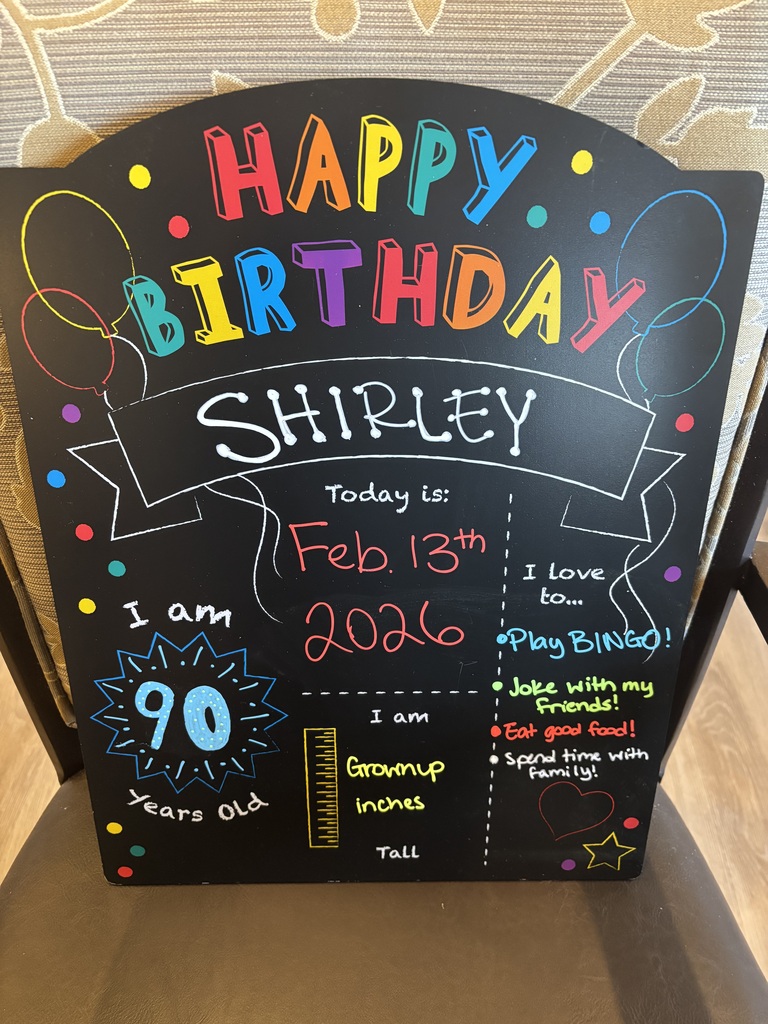 HAPPY
BIRTHDAY
SHIRLEY
Today is:
Feb. 13th
2026
I am
90
Years Old
I am
Grownup
inches
Tall
I love
to...
• Play BINGO!
• Joke with my
friends!
• Eat good food!
• Spend time with
family!